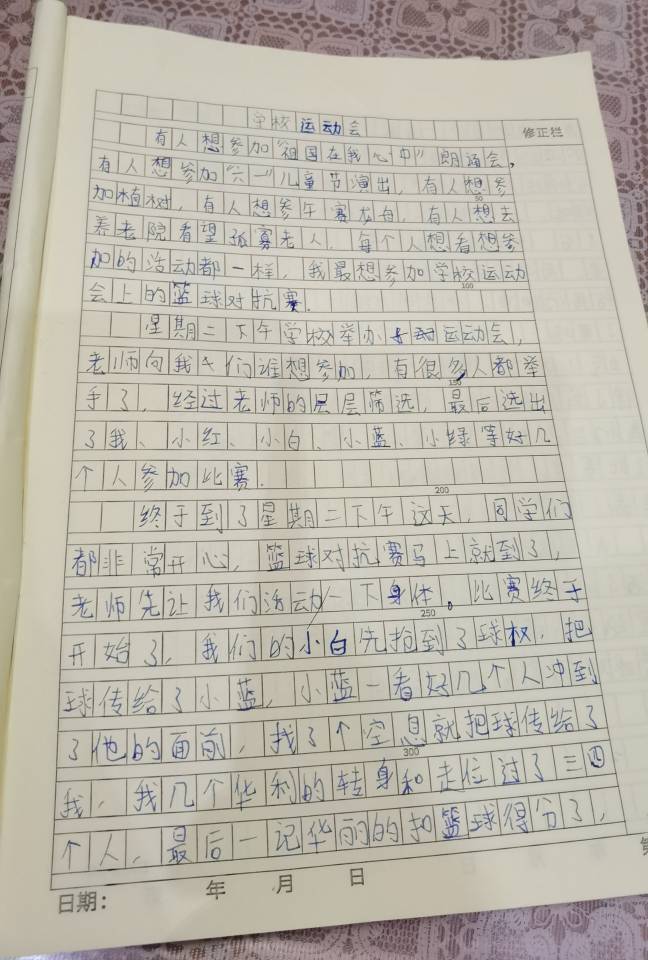 学校运动会
修正栏
有人想参加“祖国在我心中”朗诵会,
有人想参加“六一”儿童节演出,有人想参
50
加植树,有人想参午赛龙舟,有人想去
养老院看望孤寡老人,每个人想看想参
加的活动都一样,我最想参加学校运动
100
会上的篮球对抗赛.
星期二下午学校举办运动会,
老师向我们谁想参加,有很多人都举
150
手了,经过老师的层层筛选,最后选出
了我、小红、小白、小蓝、小绿等好几
个人参加比赛.
200
终于到了星期二下午这天,同学们
都非常开心,篮球对抗赛马上就到了,
老师先让我们活动一下身体。比赛终于
250
开始了,我们的小白先抢到了球权,把
球传给了小蓝,小蓝一看好几个人冲到
了他的面前,找了个空息就把球传给了
300
我,我几个华利的转身和走位过了三四
个人,最后一记华丽的扣篮球得分了,
日期: 年 月 日
第